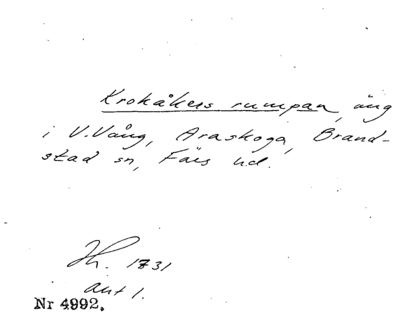 Krokåkers rumpan, äng
i V. Vång, Araskoga, Brand-
stad sn, Färs hd.
Jh. 1731
akt 1.
Nr 4992.